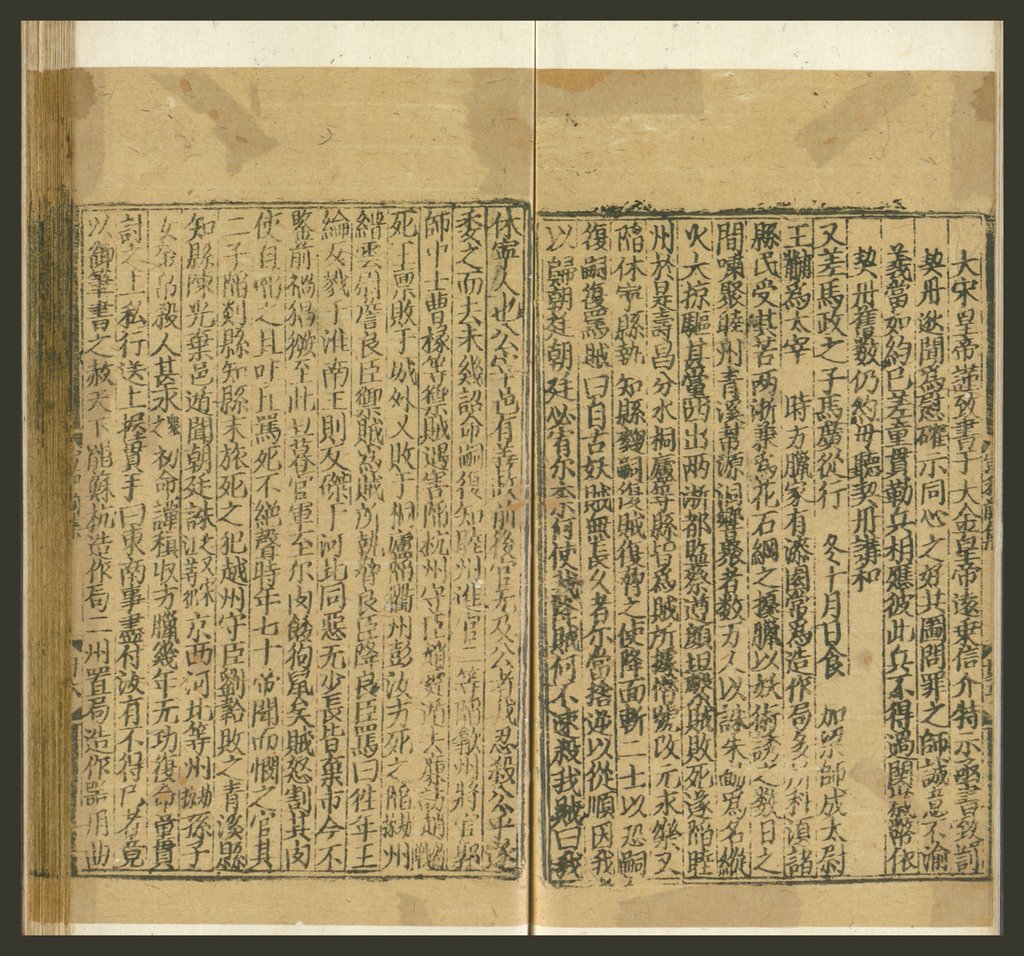 大宋皇帝謹致書于大金皇帝遠乗信介特示丞書致討
契丹逖聞爲慰確示同心之好共圖問罪之師誠意不渝
義當如約已差童貫勒兵相應彼此兵不得過関歲幣依
契丹舊數仍約毋聽契丹講和
又差馬政之子馬擴從行 冬十月日食 加梁師成太尉
王黼爲太宰 時方臘家有漆園常爲造作局多所科湏諸
縣民受其苦两浙兼爲花石綱之擾臘以妖術誘之数日之
間嘯聚睦州青溪幫源洞響聚者数万人以誅朱勔爲名縱
火大掠驅其黨四出两浙都監蔡遵顔坦擊賊敗死遂陷睦
州於是壽昌分水桐廬等縣皆爲賊所據僣號改元永樂又
陷休寧縣執知縣麴嗣復賊復脅之使降面斬二士以恐嗣
復嗣復罵賊曰自古妖賊無長久者尔當捨逆以從順因我
以歸朝廷朝廷必有尔奈何使我降賊何不速殺我賊曰我
休寧人也公宰邑有善政前後官无及公者我忍殺公乎遂
委之而去未幾詔命嗣復知睦州進官二等陷歙州將官郭
師中士曹椽等禦賊遇害陷杭州守臣趙霆遁去廉訪趙
死于賊敗于城外又敗于桐廬陷衢州彭汝方死之陷州
縉雲尉詹良臣禦賊爲賊所執脅良臣降良臣罵曰徃年王
倫反戮于淮南王則反磔于河北同惡无少長皆棄市今不
鑒前禍猖獗至此旦暮官軍至尔肉餧狗鼠矣賊怒割其肉
使自啗之且吐且罵死不絶聲時年七十帝聞而憫之官其
二子陷剡縣知縣宋旅死之犯越州守臣劉韐敗之青溪縣
知縣陳光棄邑遁聞朝廷誅之又京西河北等州孫子
殺人其永初命譚稹收方臘幾年无功復命童貫
討之上私行送上握貫手曰東南事盡付汝有不得已者竟
以御筆書之赦天下罷蘇杭造作局二州置局造作器用曲